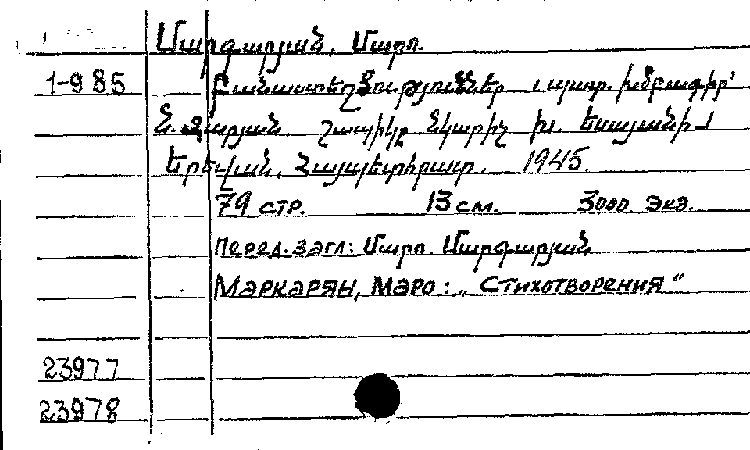 Մարգարյան, Մարո.
1-985 Բանաստեղծություններ պատ. խմբագիր՝
Ն. Զարյան. շապիկը նկարիչ Խ. Եսայանի
Երևան, Հայպետհրատ. 1945.
79 стр. 13 см. 3000 экз.
Перед. загл: Մարո Մարգարյան
Маркарян, Маро: „Стихотворения“
23977
23978